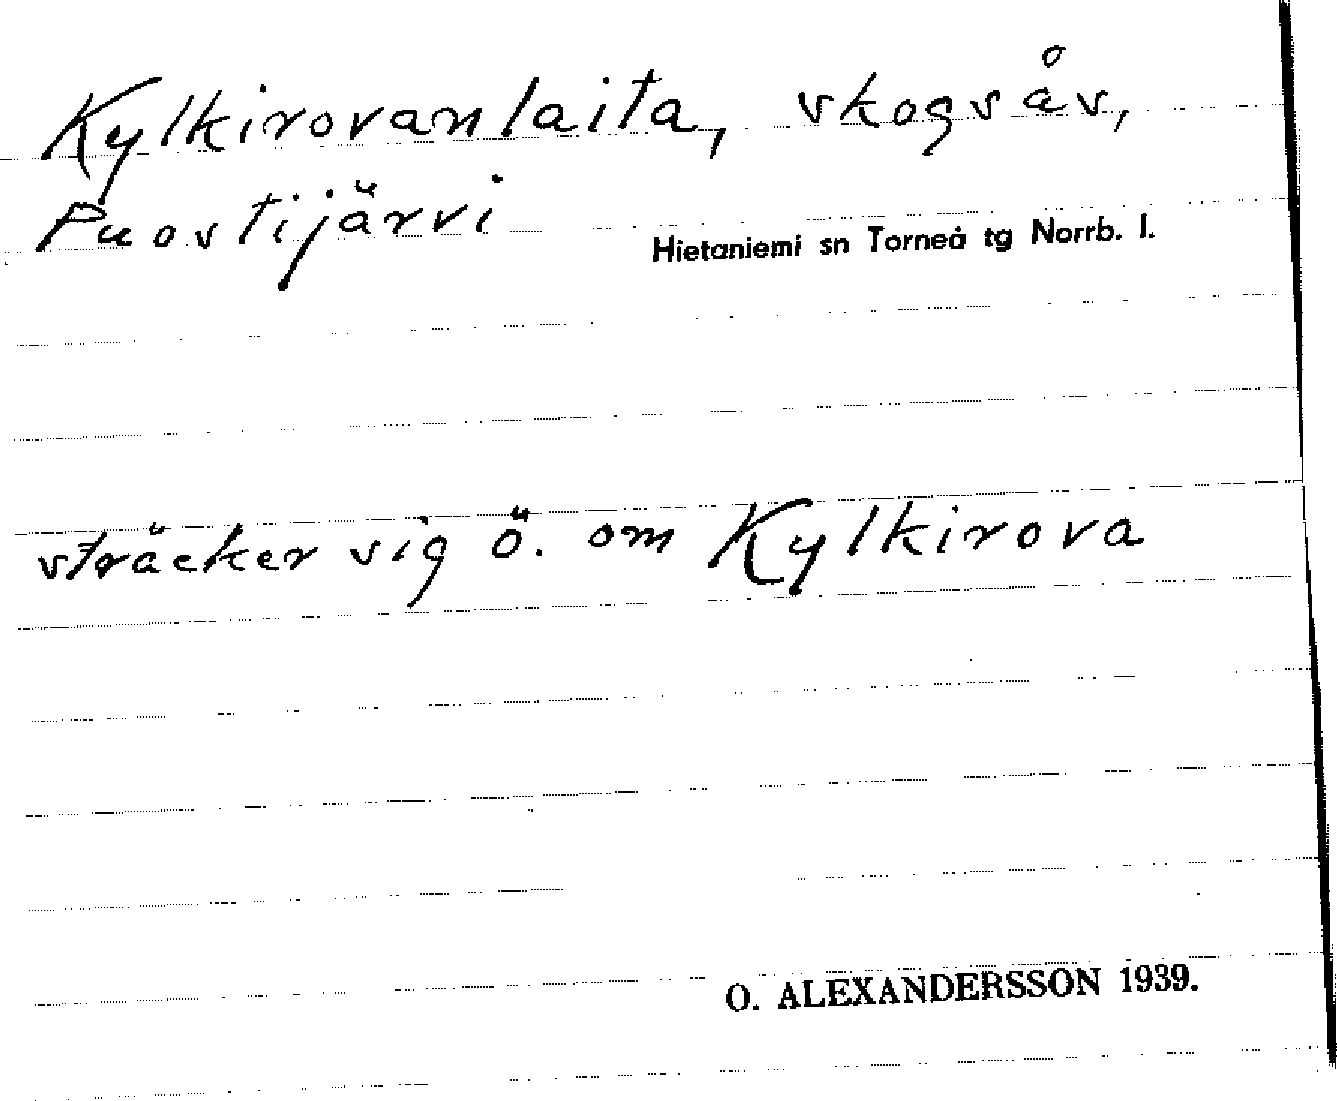 Kylkirovanlaita, skogsås,
Puostijärvi
Hietaniemi sn Torneå tg Norrb. l.
sträcker sig ö. om Kylkirova
O. ALEXANDERSSON 1939.